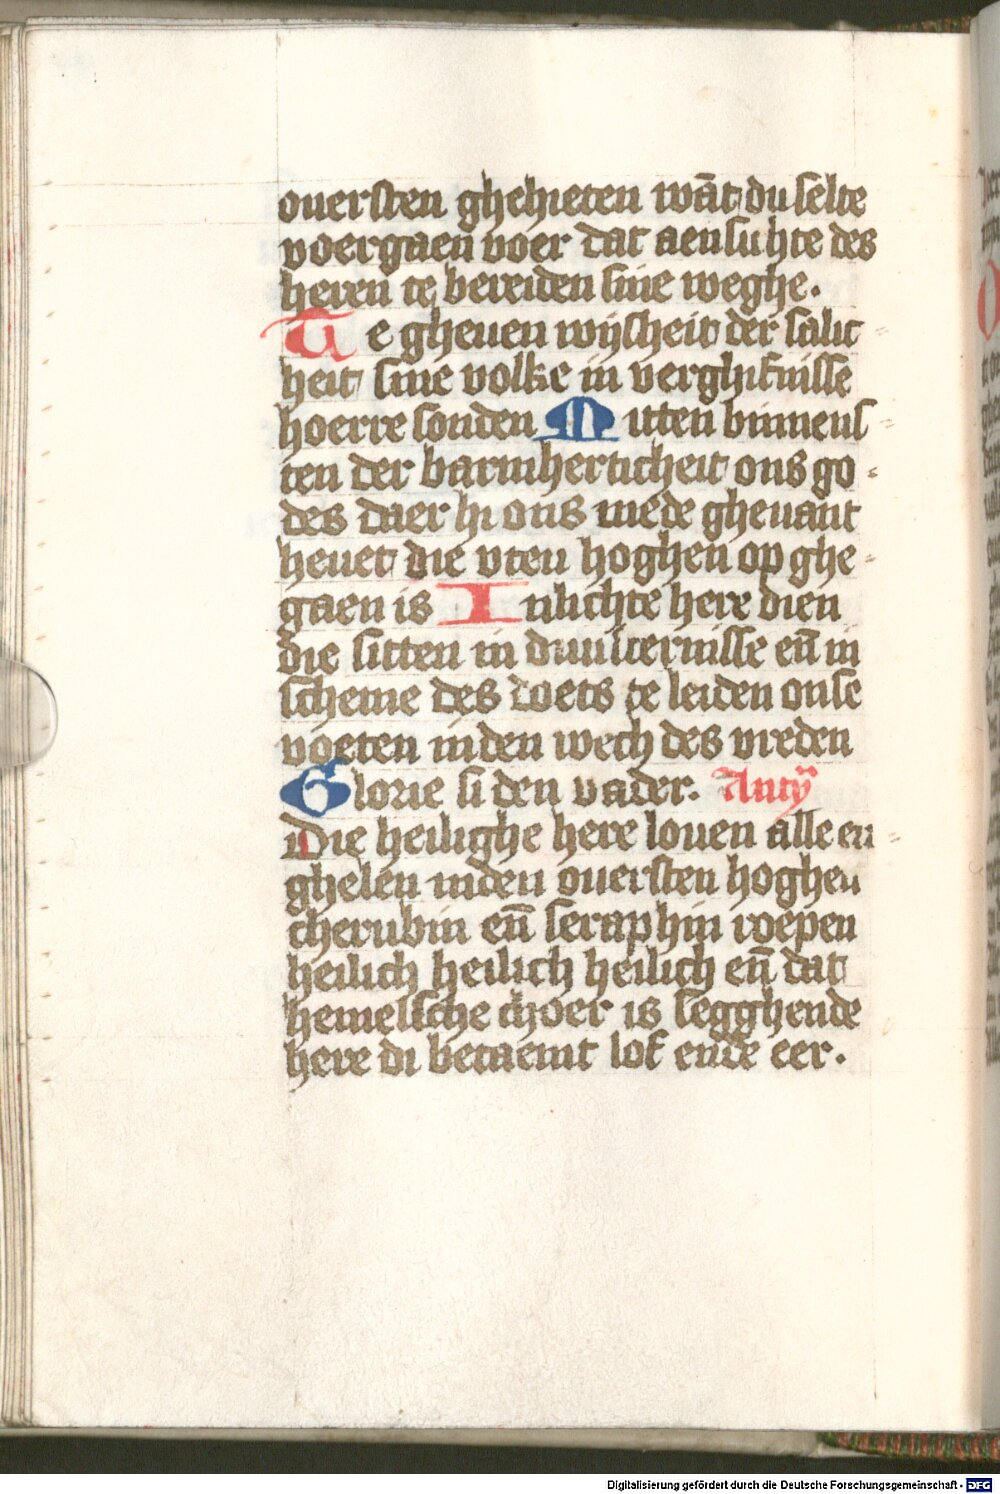 ouersten ghehieten wāt du selte
voergaen voer dat aensichte des
heren te bereiden sine weghe.
Te gheuen wijsheit der salic
heit sine volke in verghifnisse
hoerre sonden Mitten binnens
ten der barmherticheit ons go
des daer hi ons mede gheuant
heuet die vten hoghen op ghe
gaen is Inlichte here dien
die sitten in duusternisse eñ in
scheme des doets te leiden onse
voeten in den wech des vreden
Glorie si den vader. Anty̎
Die heilighe here louen alle en
ghelen inden ouersten hoghen
cherubin eñ seraphin roepen
heilich heilich heilich eñ dat
hemelsche choer is segghende
here di betaemt lof ende eer.
Digitalisierung gefördert durch die Deutsche Forschungsgemeinschaft - DFG